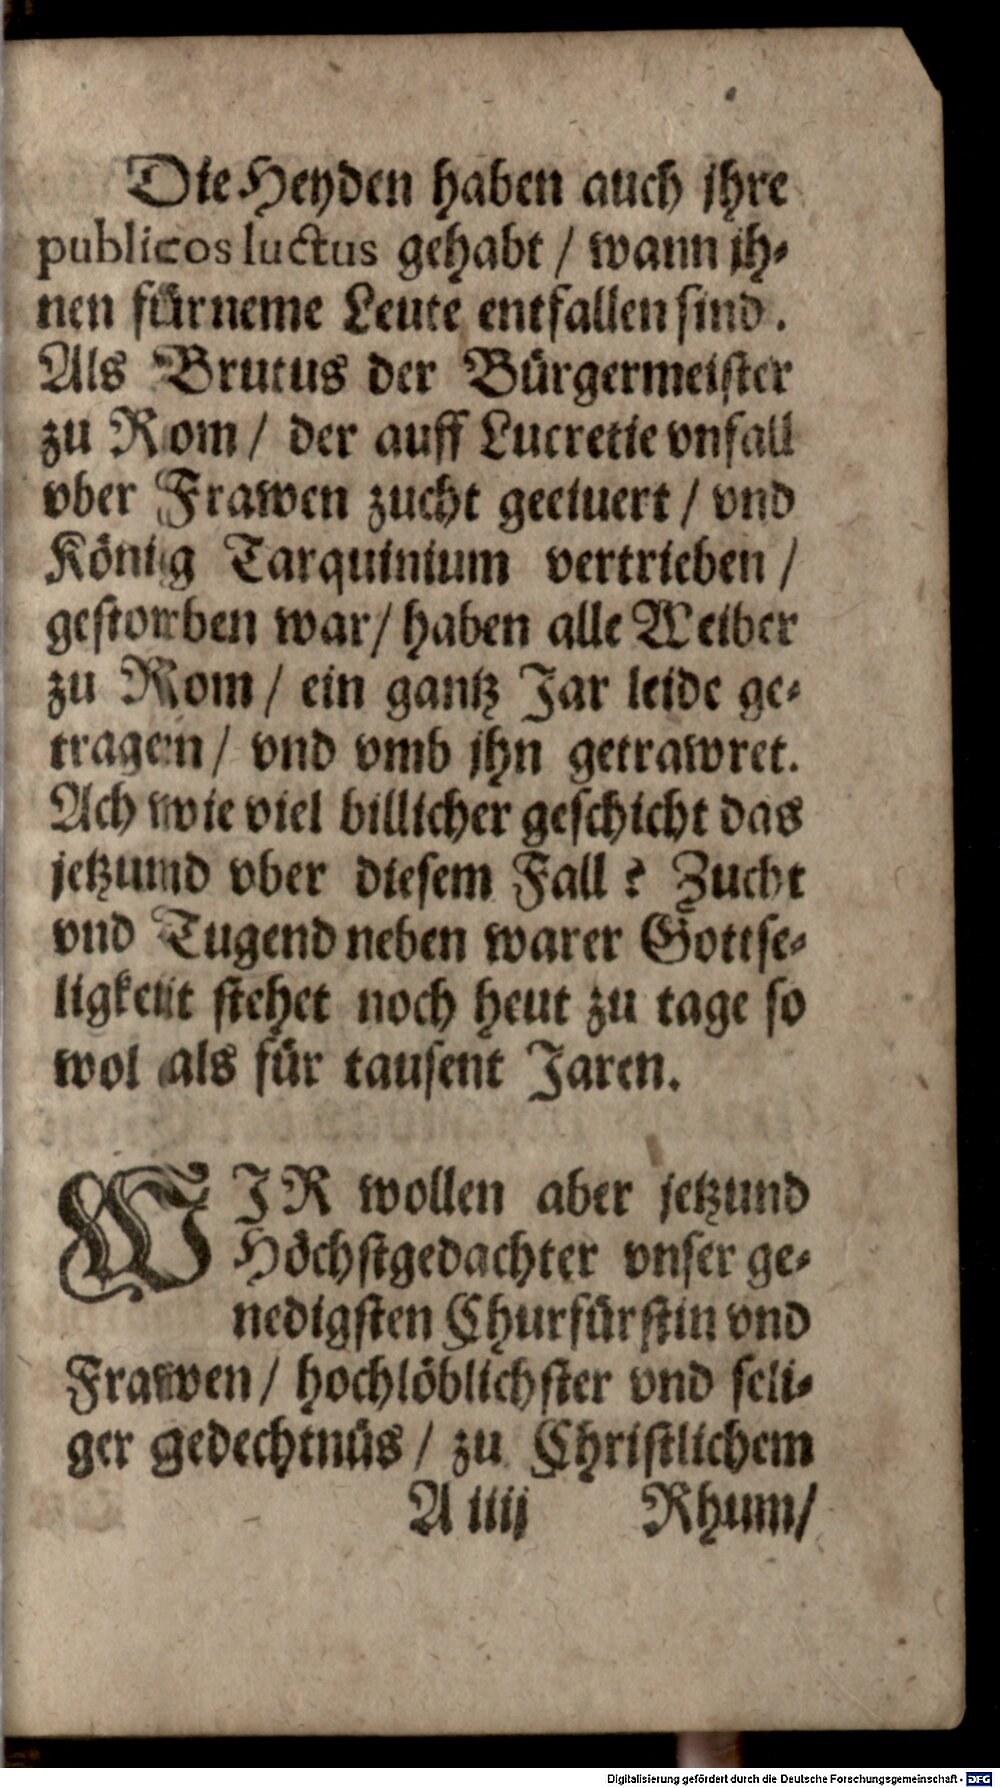 Die Heyden haben auch jhre
publicos luctus gehabt / wann jh-
nen fürneme Leute entfallen sind.
Als Brutus der Bürgermeister
zu Rom / der auff Lucretie vnfall
vber Frawen zucht geeiuert / vnd
König Tarquinium vertrieben /
gestorben war / haben alle Weiber
zu Rom / ein gantz Jar leide ge-
tragen / vnd vmb jhn getrawret.
Ach wie viel billicher geschicht das
jetzund vber diesem Fall? Zucht
vnd Tugend neben warer Gottse-
ligkeit stehet noch heut zu tage so
wol als für tausent Jaren.
WJR wollen aber jetzund
Höchstgedachter vnser ge-
nedigsten Churfürstin vnd
Frawen / hochlöblichster vnd seli-
ger gedechtnüs / zu Christlichem
A iiij Rhum/
Digitalisierung gefördert durch die Deutsche Forschungsgemeinschaft - DFG